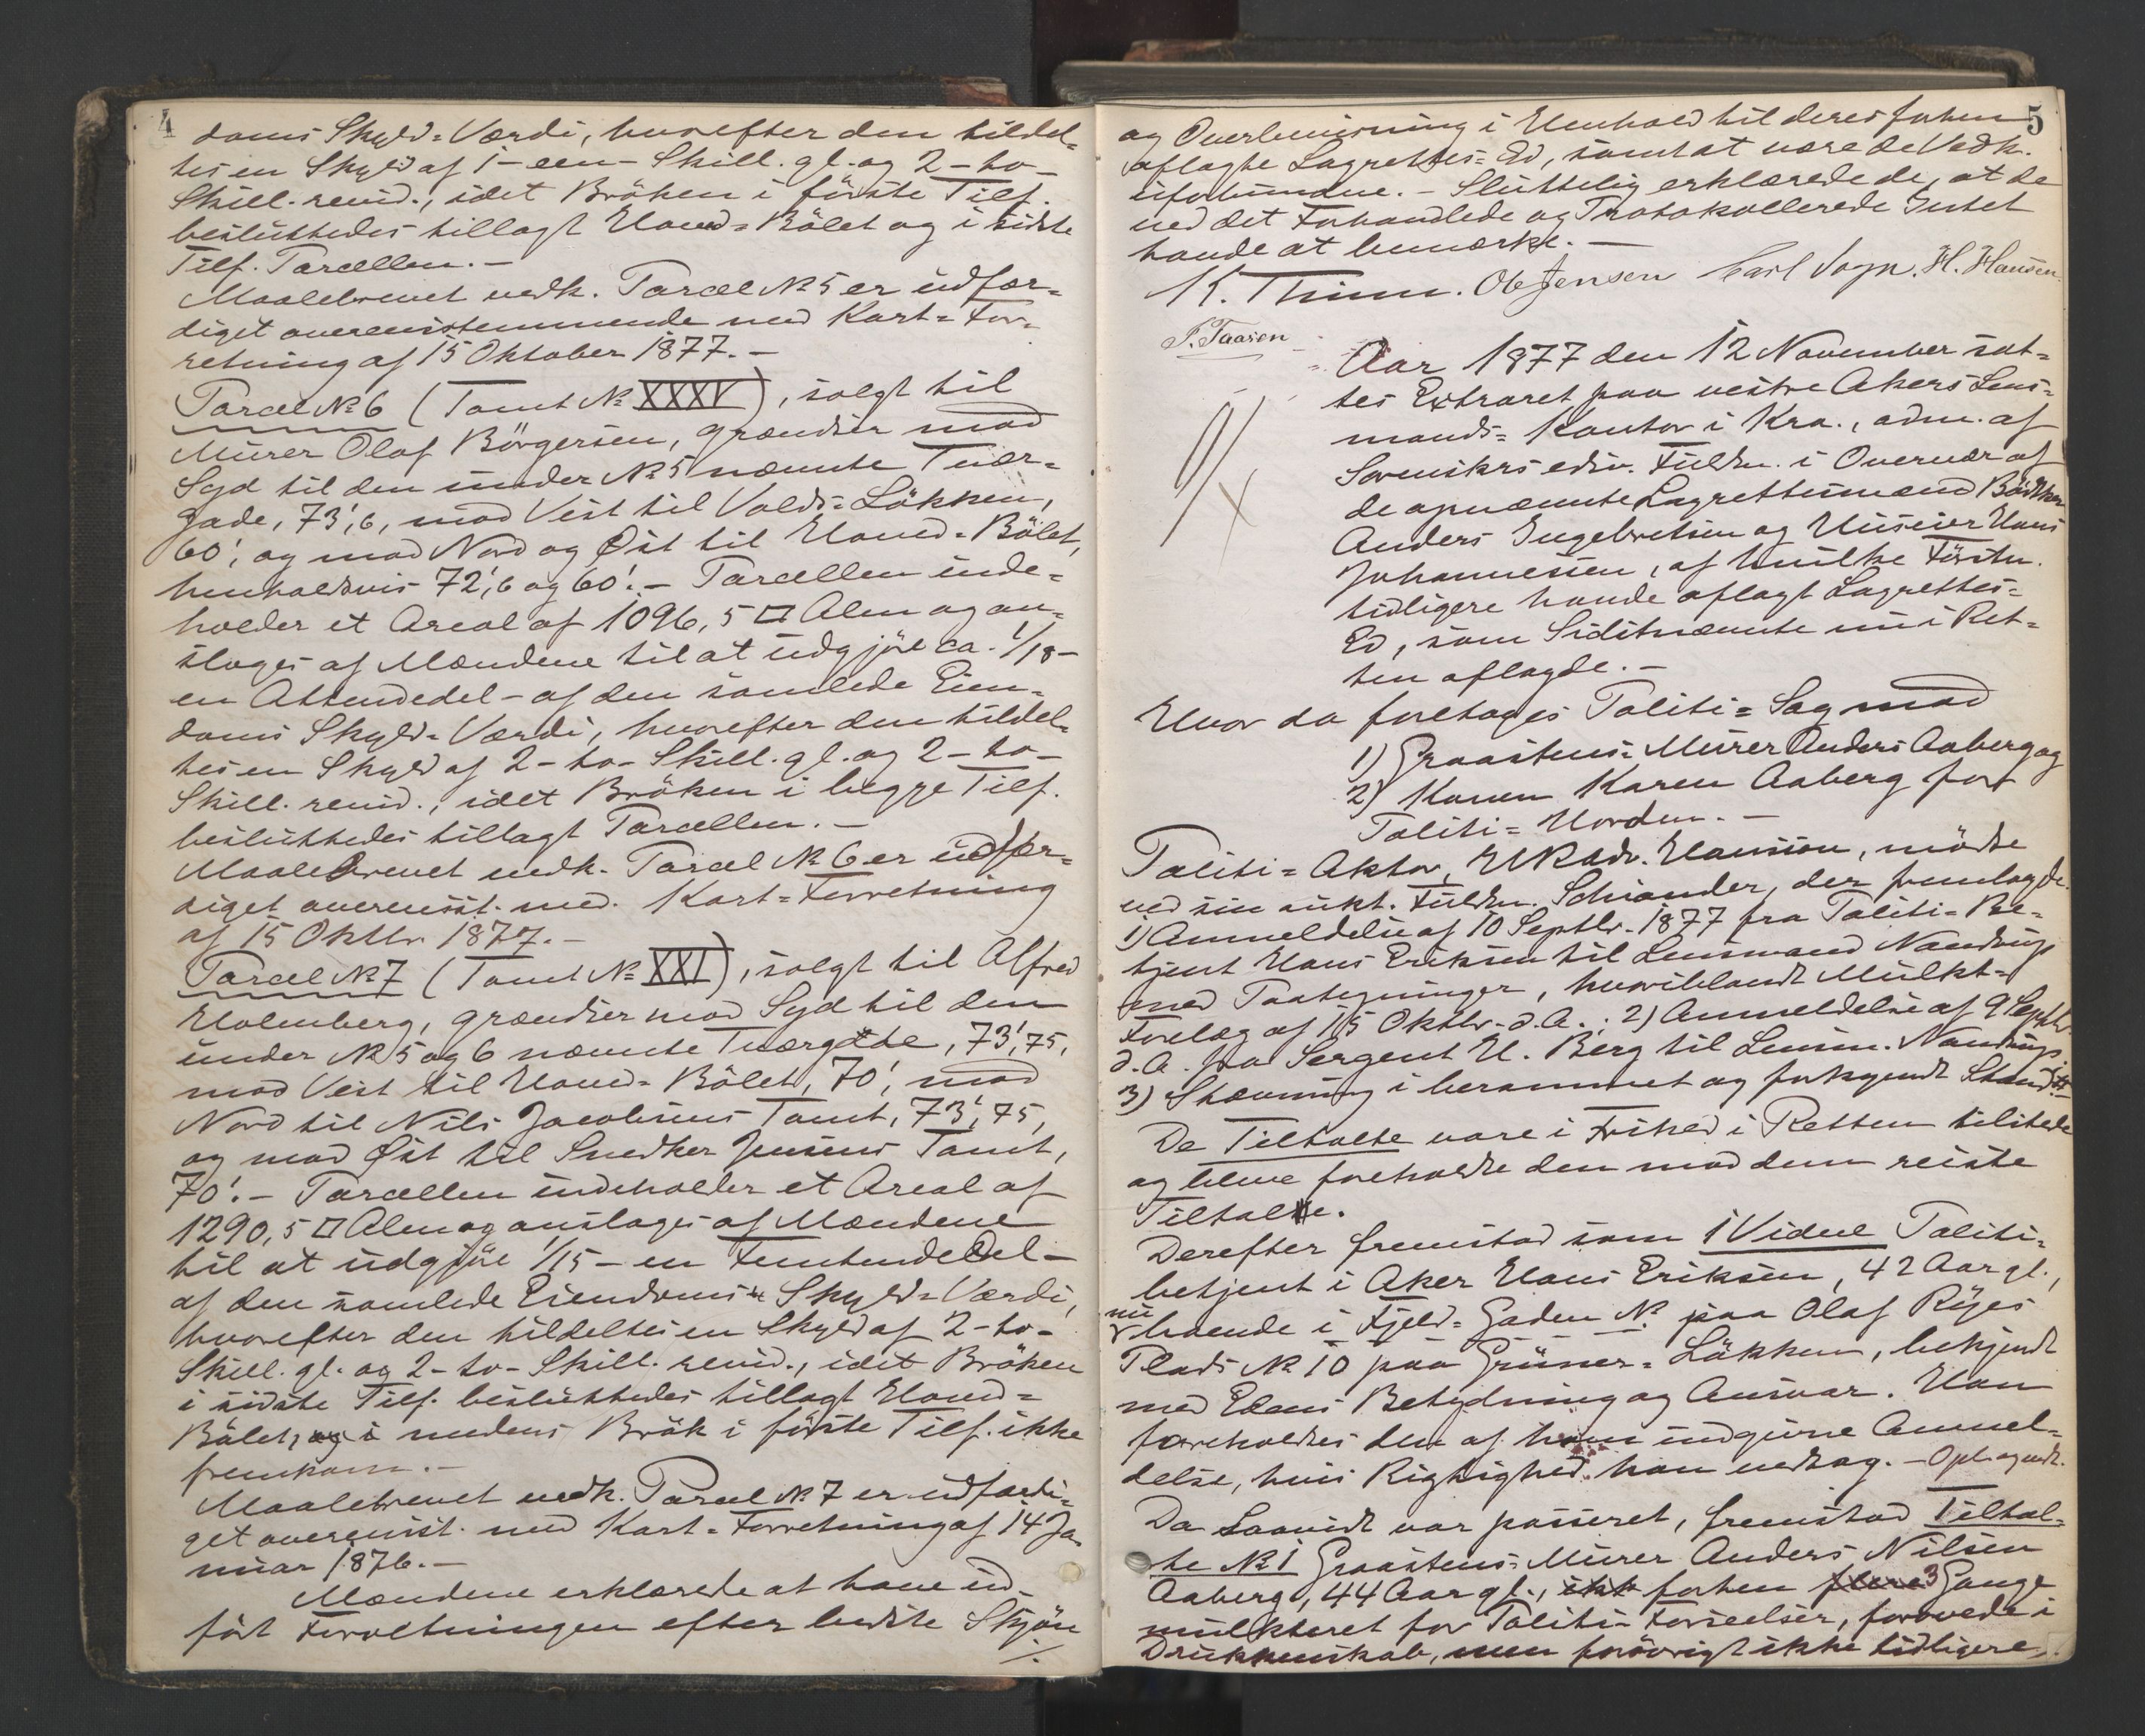 4
doms Skyld=Værdi, hvorefter den tildel=
tes en Skyld af 1 - een - Skill. gl. og 2 - to -
Skill. revid., idet Bröken i förste Tilf.
besluttedes tillagt Hoved=Bölet og i sidste
Tilf. Parcellen. -
Maalebrevet vedk. Parcel No 5 er udfær=
diget overensstemmende med Kart=For=
retning af 15 Oktober 1877. -
Parcel No 6 (Tomt No XXXV), solgt til
Murer Olaf Börgersen, grændser mod
Syd til den under No 5 nævnte Tvær=
Gade, 73',6, mod Vest til Volds=Lökken,
60', og mod Nord og Øst til Hoved=Bölet,
henholdsvis 72',6 og 60'. - Parcellen inde=
holder et Areal af 1096,5 □ Alen og an=
slages af Mændene til at udgjöre ca. 1/18 -
en Attendedel - af den samlede Eien=
doms Skyld=Værdi, hvorefter den tildel=
tes en Skyld af 2 - to - Skill. gl. og 2 - to -
Skill. revid., idet Bröken i begge Tilf.
besluttedes tillagt Parcellen. -
Maalebrevet vedk. Parcel No 6 er udfær=
diget overensst. med Kart=Forretning
af 15 Oktbr. 1877. -
Parcel No 7 (Tomt No XXI), solgt til Alfred
Holmberg, grændser mod Syd til den
under No 5 og 6 nævnte Tværgade, 73',75,
mod Vest til Hoved=Bölet, 70', mod
Nord til Nils Jacobsens Tomt, 73',75,
og mod Øst til Snedker Jensens Tomt,
70'. - Parcellen indeholder et Areal af
1290,5 □ Alen og anslages af Mændene
til at udgjöre 1/15 - en Femtendedel -
af den samlede Eiendoms Skyld=Værdi,
hvorefter den tildeltes en Skyld af 2 - to -
Skill. gl. og 2 - to - Skill. revid., idet Bröken
i sidste Tilf. besluttedes tillagt Hoved=
Bölet, og i medens Brök i förste Tilf. ikke
fremkom. -
Maalebrevet vedk. Parcel No 7 er udfærdi=
get overensst. med Kart=Forretning af 14 Ja=
nuar 1876. -
Mændene erklærede at have ud=
fört Forretningen efter bedste Skjön
./.
5
og Overbevisning i Henhold til deres forhen
aflagte Lagrettes=Ed, samt at være de Vedk.
uforbundne. - Sluttelig erklærede de, at de
ved det Forhandlede og Protokollerede Intet
havde at bemærke. -
K. Thinn. Ole Jensen Carl Sogn. H. Hansen
P. Taasen
Aar 1877 den 12 November sat=
tes Extraret paa vestre Akers Lens=
mands=Kontor i Kra., adm. af
Sorenskrs edsv. Fuldm. i Overvær af
de opnævnte Lagrettesmænd Bödker
Anders Ingebretsen og Huseier Hans
Johannesen, af hvilke Förstn.
tidligere havde aflagt Lagrettes=
Ed, som Sidstnævnte nu i Ret=
ten aflagde. -
Hvor da foretoges Politi=Sag mod
1) Graastens=Murer Anders Aaberg og
2) Konen Karen Aaberg for
Politi=Uorden. -
Politi=Aktor, HRAdv. Hansson, mödte
ved sin sukt. Fuldm. Schiander, der fremlagde
1) Anmeldelse af 10 Septbr. 1877 fra Politi=Be=
tjent Hans Eriksen til Lensmand Nandrup
med Paategninger, hvoriblandt Mulkt=
Forelæg af 15 Oktbr. d. A.; 2) Anmeldelse af 9 Septbr.
d. A. fra Sergent H. Berg til Lensm. Nandrup.
3) Stævning i berammet og forkyndt Stand.
De Tiltalte vare i Frihed i Retten tilstede
og bleve foreholdte den mod dem reiste
Tiltale.
Derefter fremstod som 1 Vidne Politi=
betjent i Aker Hans Eriksen, 42 Aar gl.,
nu
boende i Fjeld=Gaden No paa Olaf Ryes
Plads No 10 paa Grüner=Lökken, bekjendt
med Edens Betydning og Ansvar. Han
foreholdtes den af ham indgivne Anmel=
delse, hvis Rigtighed han vedtog. - Opl. og vedt.
Da Saavidt var passeret, fremstod Tiltal=
te No 1 Graastens=Murer Anders Nilsen
Aaberg, 44 Aar gl., ikke forhen flere 3 Gange
mulkteret for Politi=Forseelser, forövede i
Drukkenskab, men forövrigt ikke tidligere